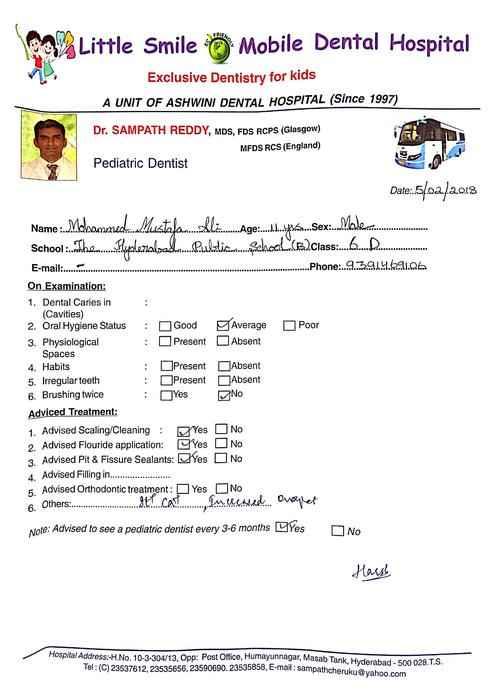 Little Smile ECO FRIENDLY Mobile Dental Hospital
Exclusive Dentistry for kids
A UNIT OF ASHWINI DENTAL HOSPITAL (Since 1997)
Dr. SAMPATH REDDY, MDS, FDS RCPS (Glasgow)
MFDS RCS (England)
Pediatric Dentist
Date: 5/02/2018
Name: Mohammed Mustafa Ali Age: 11 yrs Sex: Male
School: The Hyderabad Public School (B) Class: 6 D
E-mail: - Phone: 9391469106
On Examination:
1. Dental Caries in :
(Cavities)
2. Oral Hygiene Status : Good Average Poor
3. Physiological : Present Absent
Spaces
4. Habits : Present Absent
5. Irregular teeth : Present Absent
6. Brushing twice : Yes No
Adviced Treatment:
1. Advised Scaling/Cleaning : Yes No
2. Advised Flouride application: Yes No
3. Advised Pit & Fissure Sealants: Yes No
4. Advised Filling in....................
5. Advised Orthodontic treatment : Yes No
6. Others: Increased
Note: Advised to see a pediatric dentist every 3-6 months Yes No
Hospital Address:-H.No. 10-3-304/13, Opp: Post Office, Humayunnagar, Masab Tank, Hyderabad - 500 028.T.S.
Tel : (C) 23537612, 23535656, 23590690. 23535858, E-mail : sampathcheruku@yahoo.com